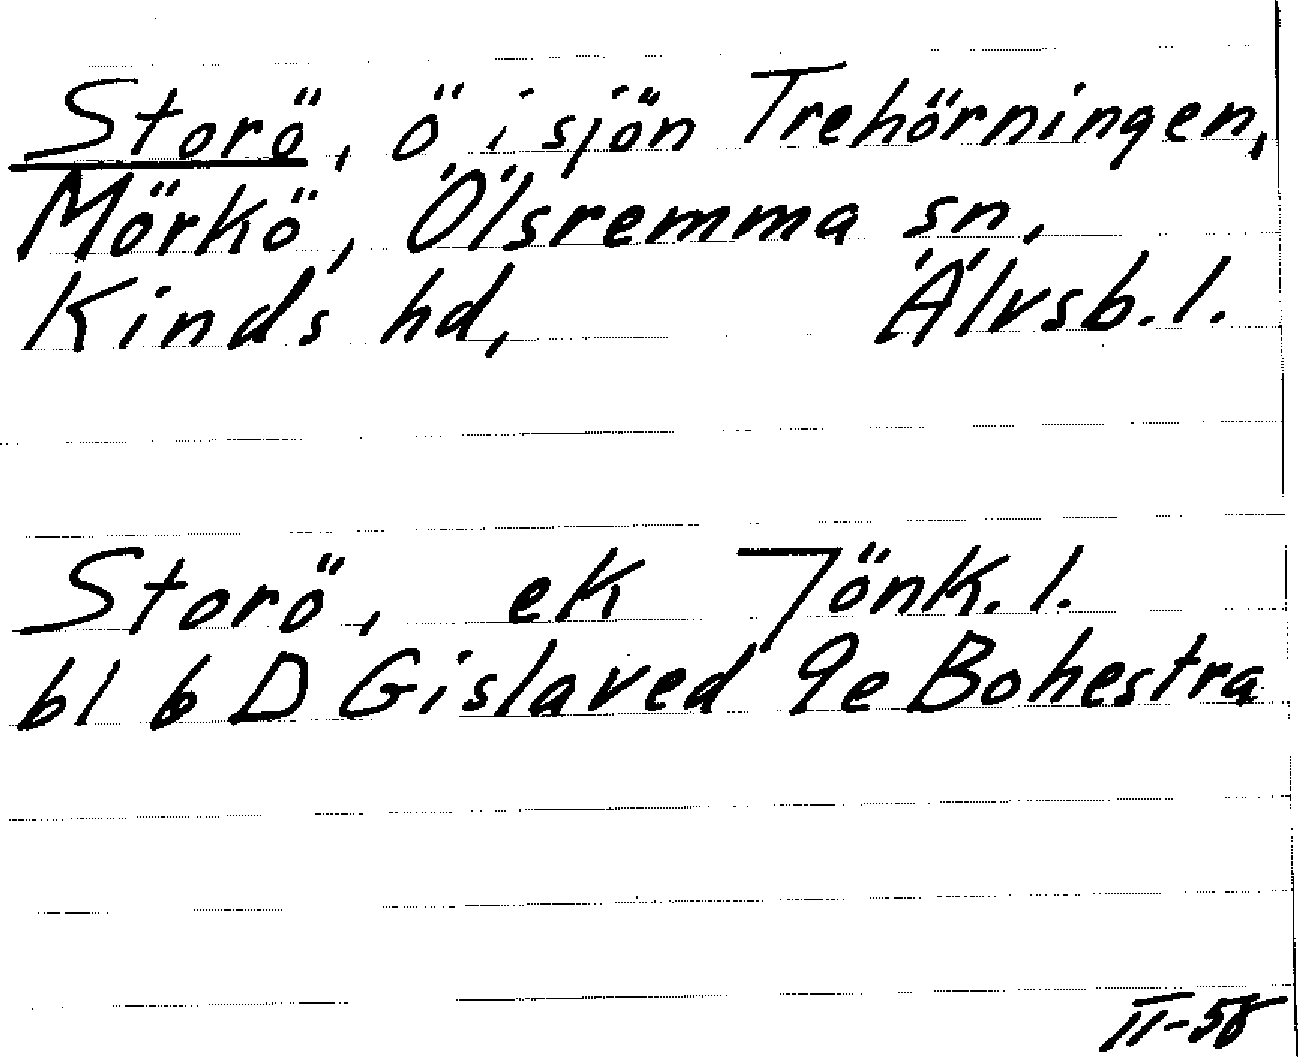 Storö, ö i sjön Trehörningen,
Mörkö, Ölsremma sn,
Kinds hd, Älvsb. l.
Storö, ek Jönk. l.
bl 6 D Gislaved 9e Bohestra
II-58